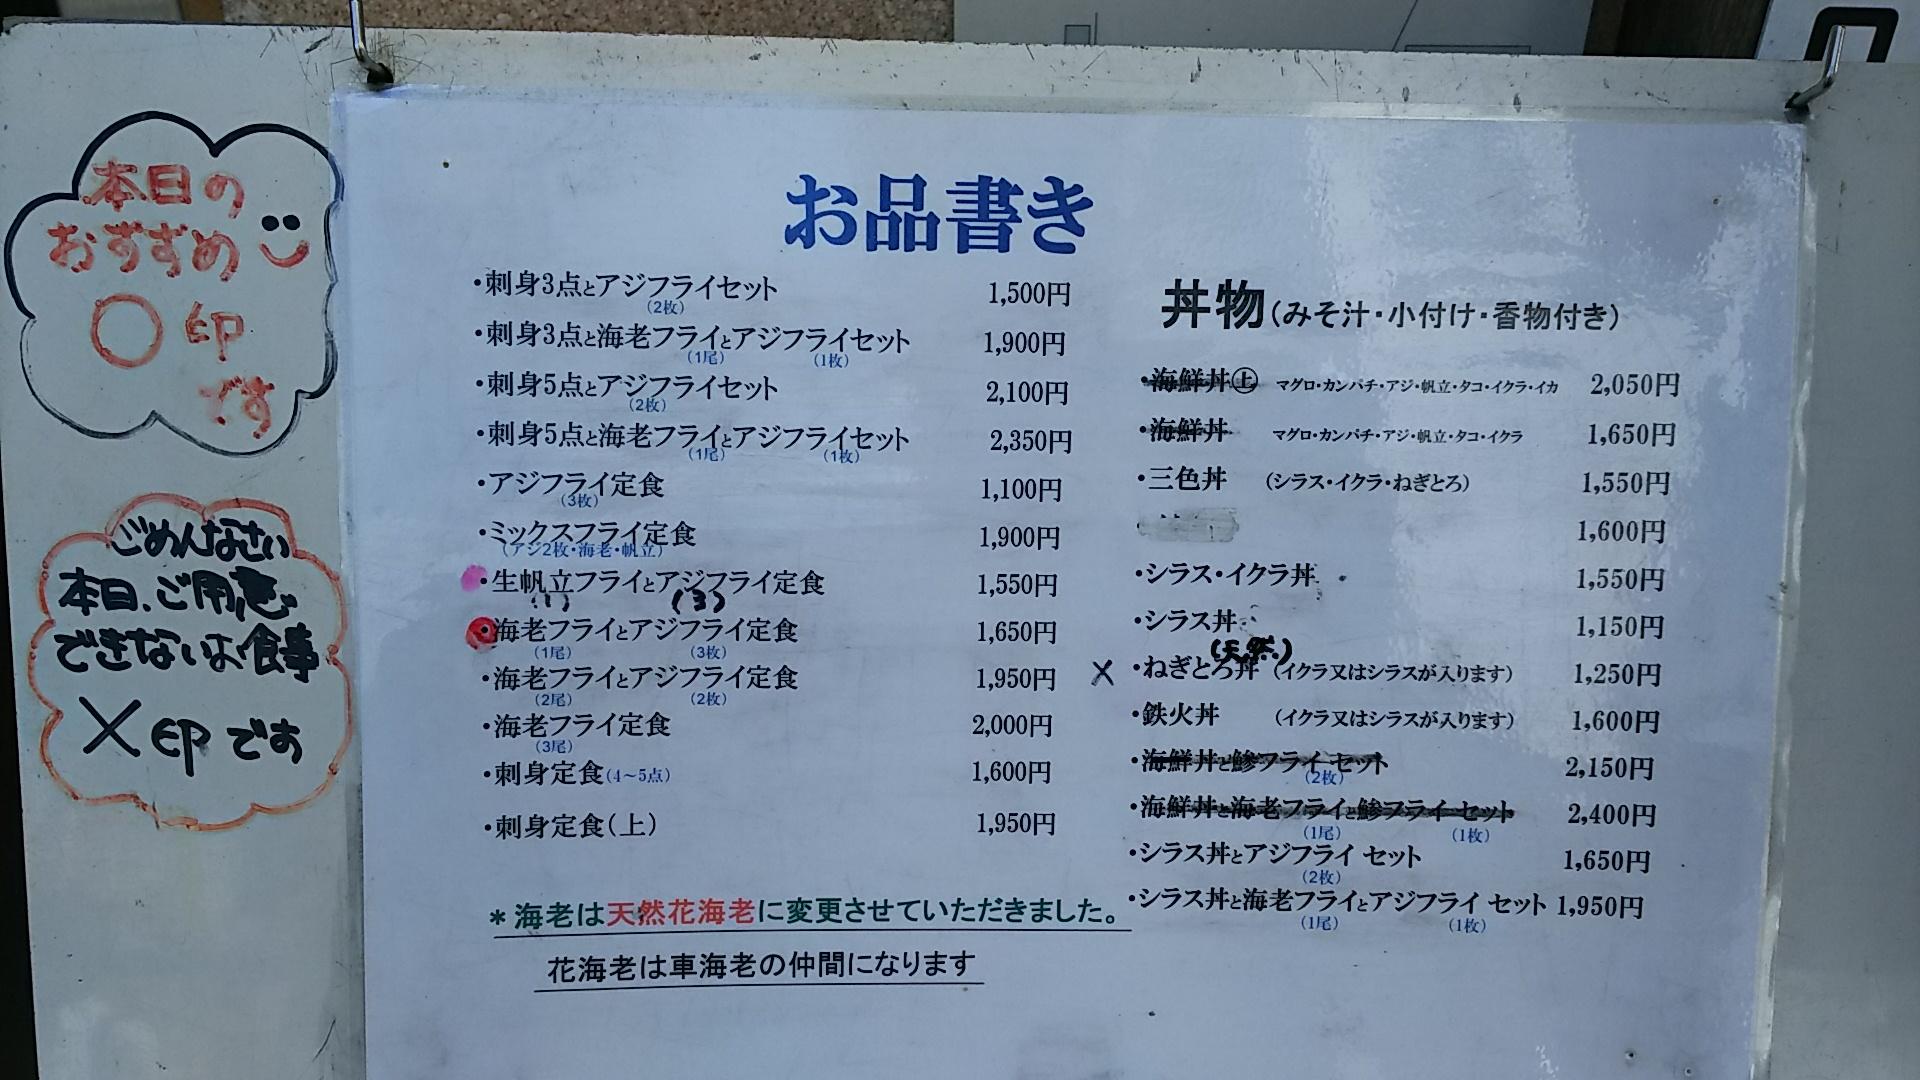 本日の
おすすめ
〇印
です
ごめんなさい
本日、ご用意
できないお食事
×印です
お品書き
・刺身3点とアジフライセット 1,500円
(2枚)
・刺身3点と海老フライとアジフライセット 1,900円
(1尾) (1枚)
・刺身5点とアジフライセット 2,100円
(2枚)
・刺身5点と海老フライとアジフライセット 2,350円
(1尾) (1枚)
・アジフライ定食 1,100円
(3枚)
・ミックスフライ定食 1,900円
(アジ2枚・海老・帆立)
・生帆立フライとアジフライ定食 1,550円
(1) (3)
・海老フライとアジフライ定食 1,650円
(1尾) (3枚)
・海老フライとアジフライ定食 1,950円
(2尾) (2枚)
・海老フライ定食 2,000円
(3尾)
・刺身定食(4～5点) 1,600円
・刺身定食(上) 1,950円
＊海老は天然花海老に変更させていただきました。
花海老は車海老の仲間になります
丼物(みそ汁・小付け・香物付き)
・海鮮丼㊤ マグロ・カンパチ・アジ・帆立・タコ・イクラ・イカ 2,050円
・海鮮丼 マグロ・カンパチ・アジ・帆立・タコ・イクラ 1,650円
・三色丼 (シラス・イクラ・ねぎとろ) 1,550円
1,600円
・シラス・イクラ丼 1,550円
・シラス丼 1,150円
(天然)
×・ねぎとろ丼 (イクラ又はシラスが入ります) 1,250円
・鉄火丼 (イクラ又はシラスが入ります) 1,600円
・海鮮丼と鯵フライ セット 2,150円
(2枚)
・海鮮丼と海老フライと鯵フライ セット 2,400円
(1尾) (1枚)
・シラス丼とアジフライ セット 1,650円
(2枚)
・シラス丼と海老フライとアジフライ セット 1,950円
(1尾) (1枚)